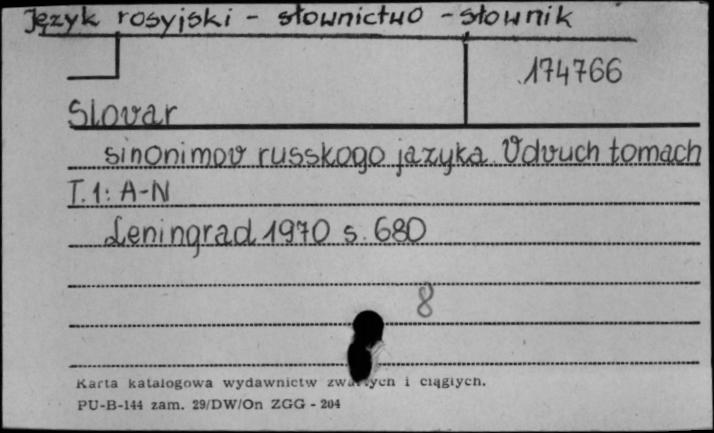 Język rosyjski - słownictwo - słownik
174766
Slovar
sinonimov russkogo jazyka. V dvuch tomach
T. 1: A-N
Leningrad 1970 s. 680
8
Karta katalogowa wydawnictw i ciągłych.
PU-B-144 zam. 29/DW/On ZGG - 204